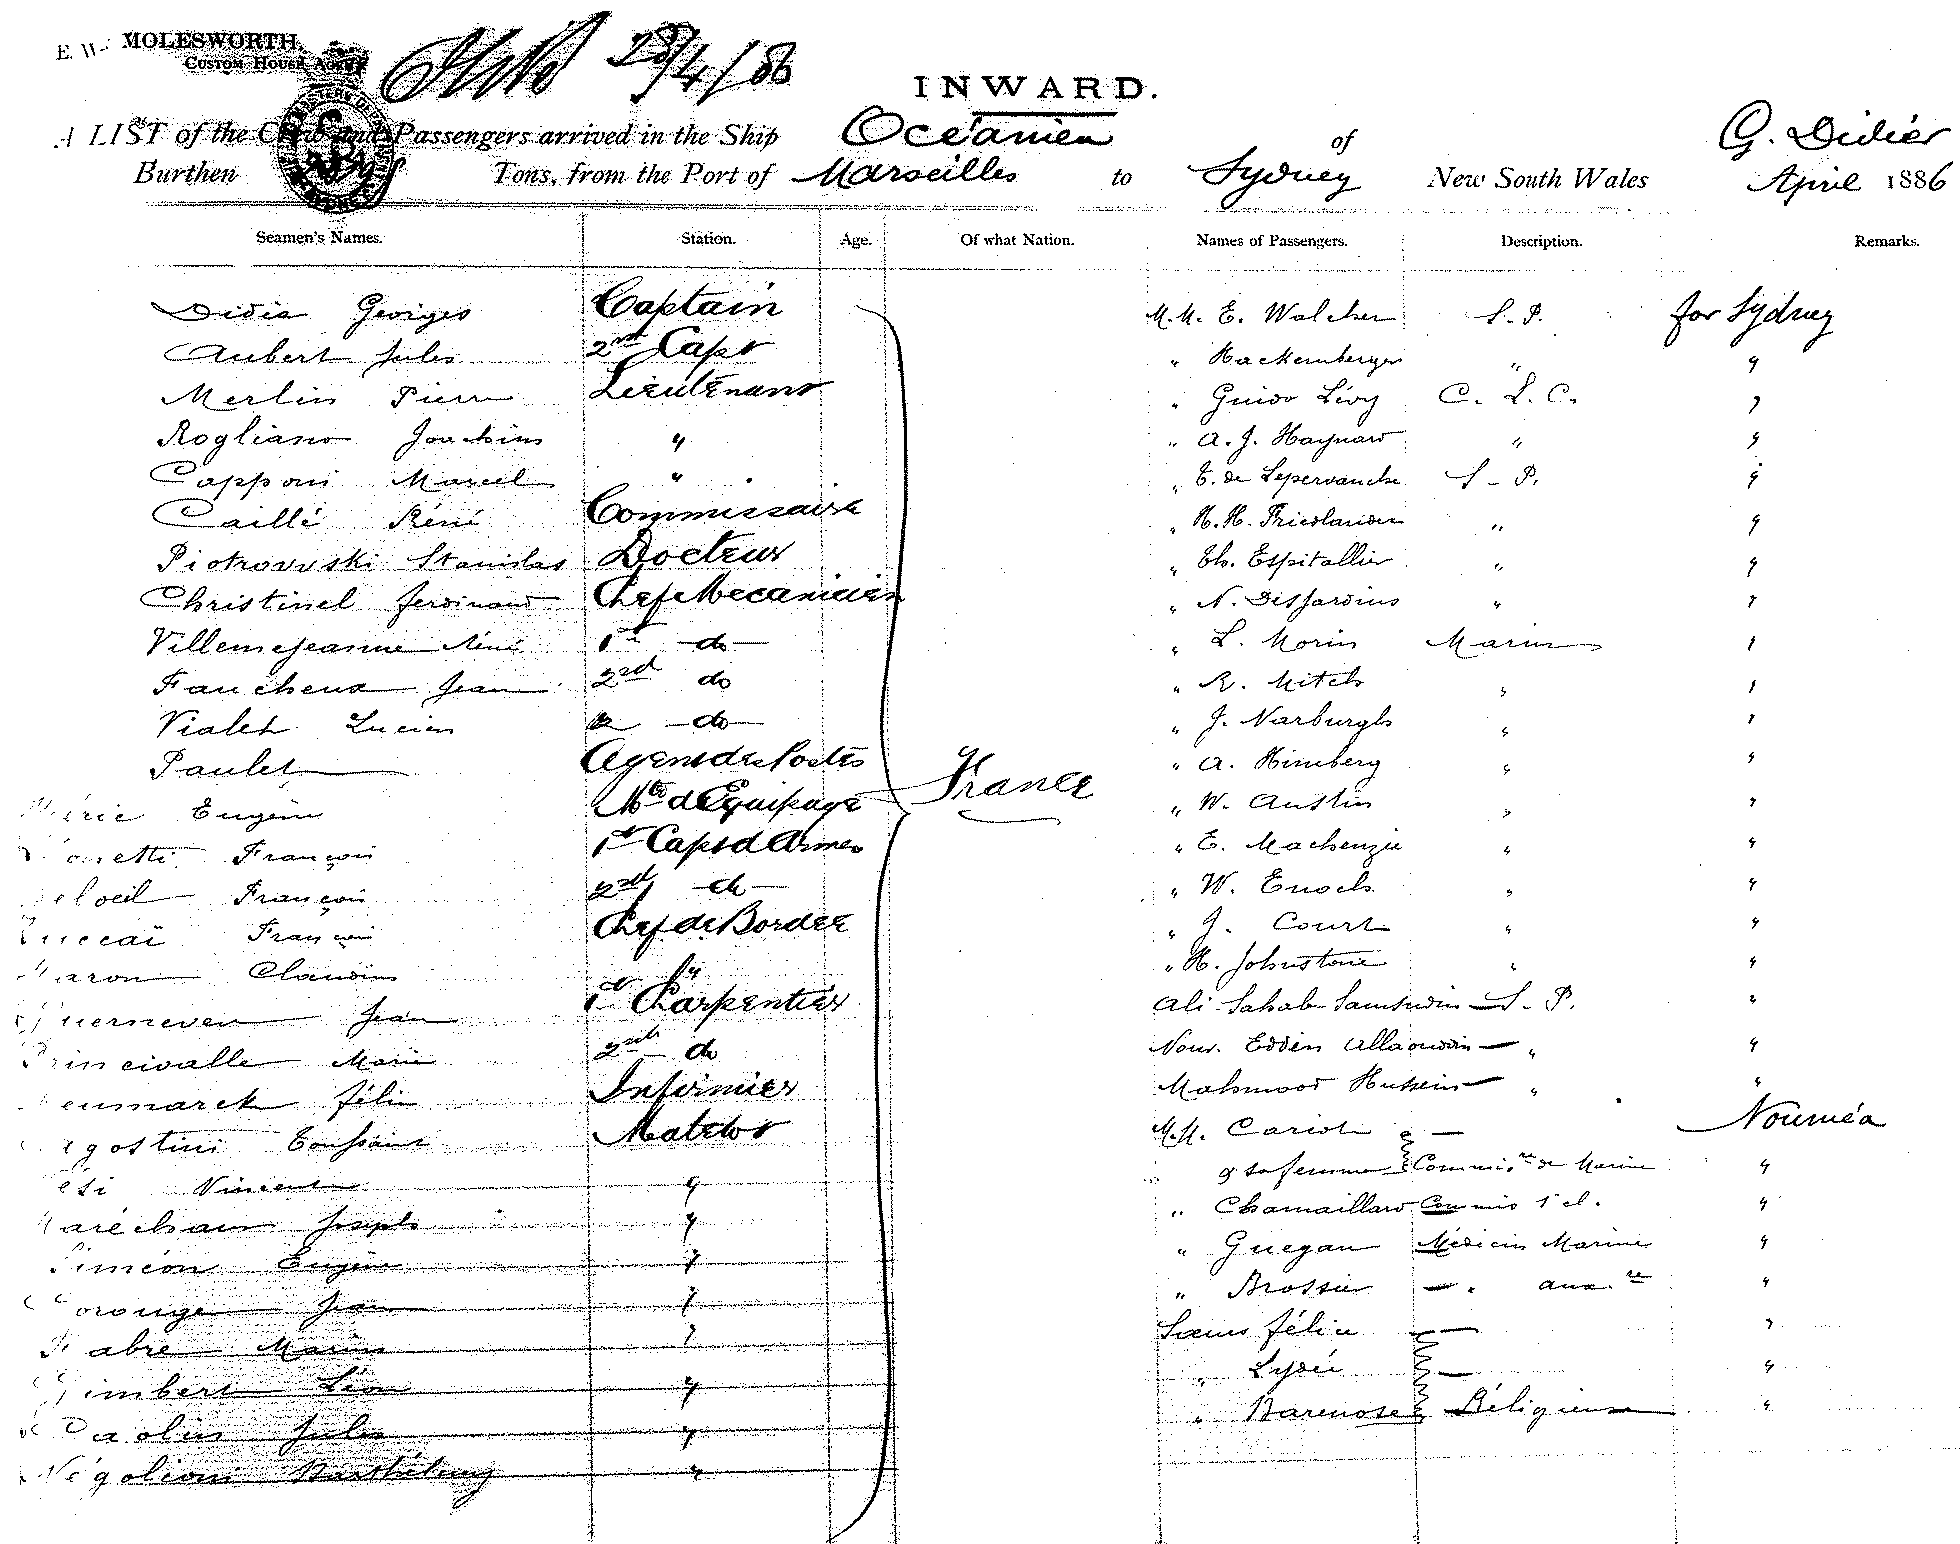 E. W. MOLESWORTH,
CUSTOM HOUSE AGENT
28/4/86
INWARD.
A LIST of the Crew and Passengers arrived in the Ship Océanien of G. Didier
Burthen Tons, from the Port of Marseilles to Sydney New South Wales April 1886
Seamen's Names. Station. Age. Of what Nation. Names of Passengers. Description. Remarks.
Didier Georges Captain M.M. E. Walcher S. P. for Sydney
Aubert Jules 2nd Capt " Hackemberger " "
Merlin Pierre Lieutenant " Guido Lévy C. L. C. "
Rogliano Joachim " " A. J. Haynard " "
Capponi Marcel " " E. de Lepervanche S. P. "
Caillé Réné Commissaire " H. H. Friedlander " "
Piotrowski Stanislas Docteur " Th. Espitallier " "
Christinel Ferdinand Chef Mecanicien " N. Desjardins " "
Villemejeanne Réné 1er do " L. Morin Marin "
Faucheux Jean 2nd do " R. Mitch " "
Vialet Lucien do " J. Narburgh " "
Paulet Agent des Postes " A. Himberg " "
France
Eugène Mtre d'Equipage " W. Austin " "
François 1er Capt d'Armes " E. Mackenzie " "
François 2nd do " W. Enoch " "
François Chef de Bordée " J. Court " "
Claudius " " H. Johnstone " "
Jean 1er Charpentier Ali Sahab Samsudin S. P. "
Princivalle Marie 2nd do Nour Edden Allaoudin " "
Félix Infirmier Mahmood Hussein " "
Agostini Toussaint Matelot M.M. Cariot Nouméa
Vincent " & sa femme Commisre de Marine "
Maréchaux Joseph " " Chamaillard Commis 1 cl. "
Siméon Eugène " " Guegan Médecin Marine "
Jean " " Brossier " auxre "
Fabre Marius " Soeurs Félix "
Gimbert Léon " " Lydie "
Paolin Jules " " Réligieuse "
Barthélemy "